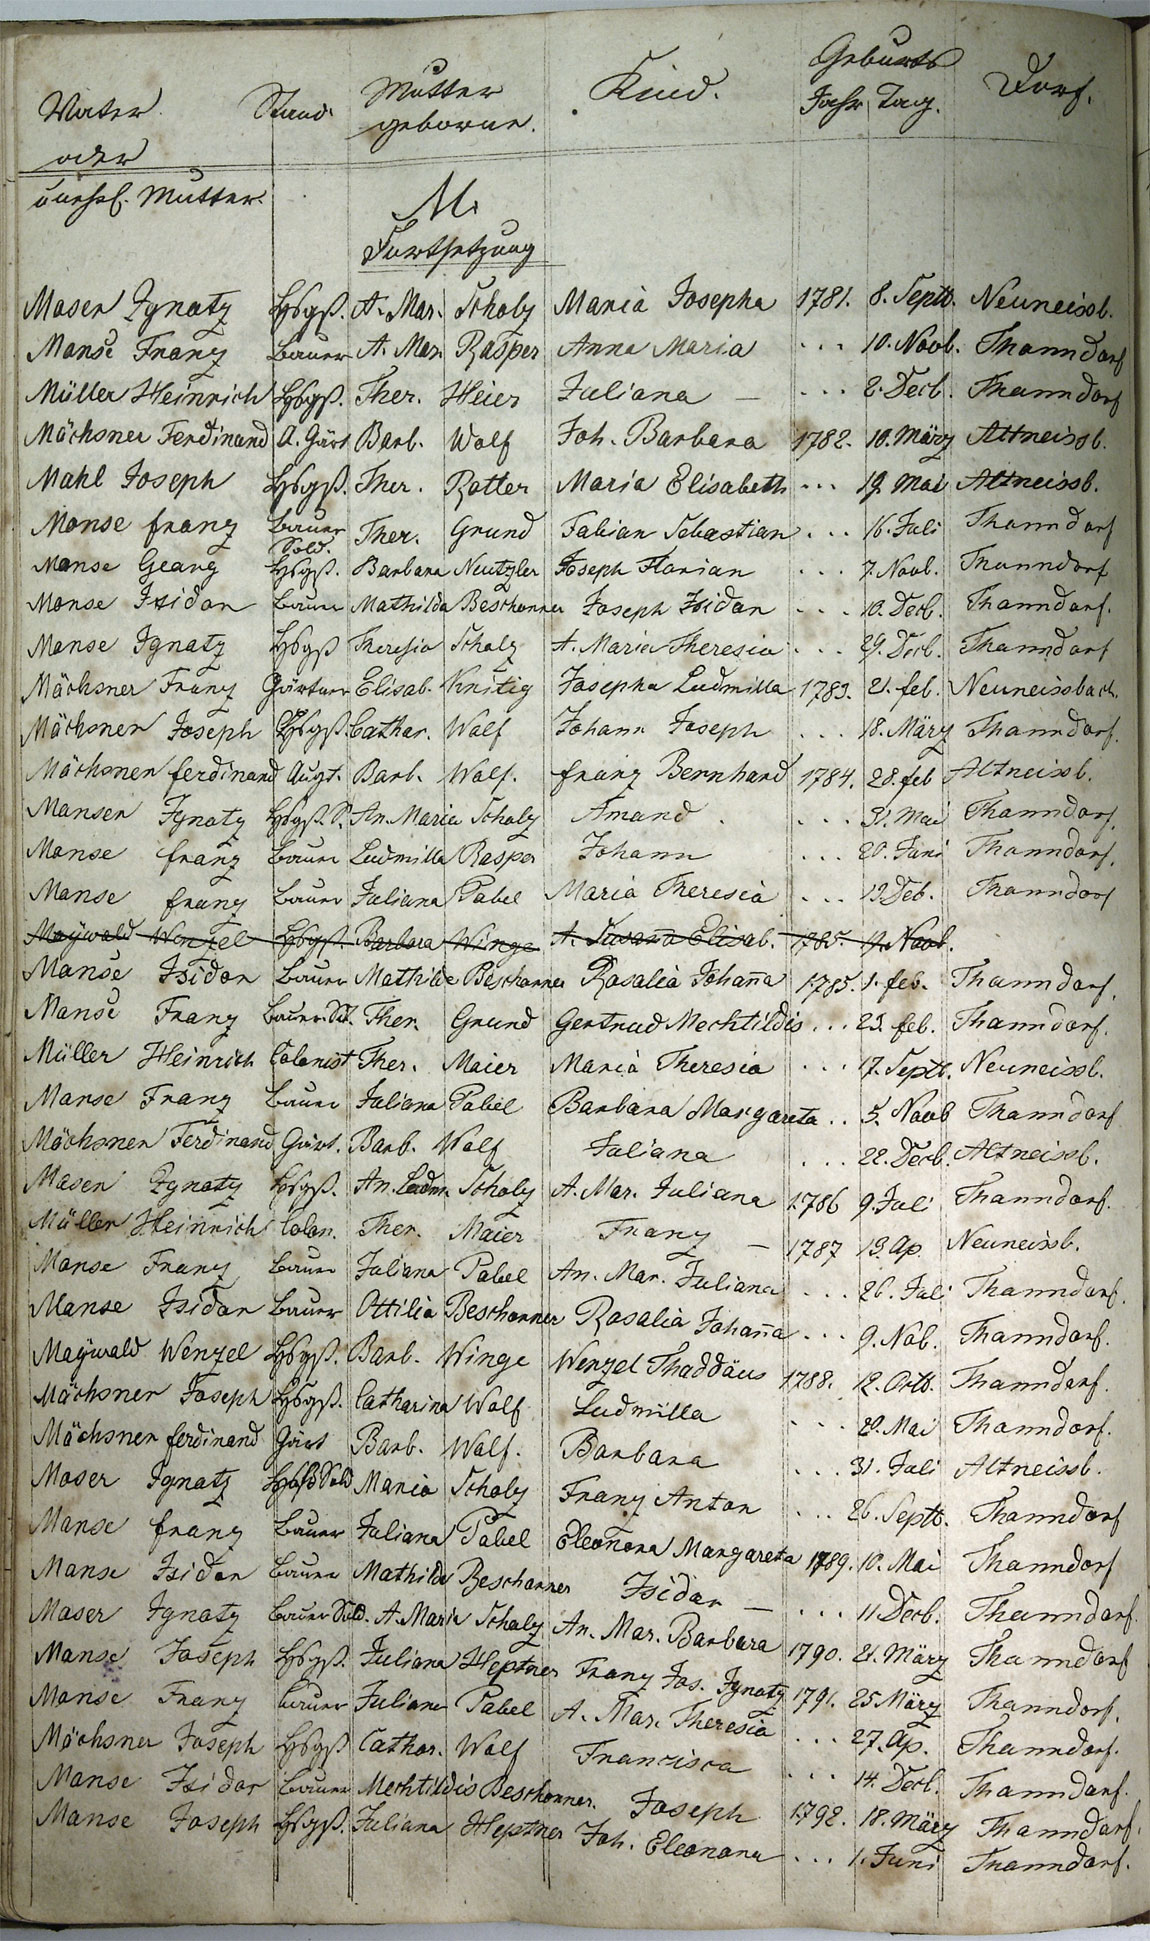 Vater Stand. Mutter Kind. Geburts Dorf.
oder geborne. Jahr Tag.
unehel. Mutter.
M.
Fortsetzung
Moser Ignatz Hsgß. A. Mar. Scholz Maria Josepha 1781. 8. Septb. Neuneissb.
Monse Franz Bauer A. Mar. Rasper Anna Maria ... 10. Novb. Thanndorf
Müller Heinrich Hsgß. Ther. Heier Juliana — ... 2. Decb. Thanndorf
Möchsner Ferdinand A. Gärt Barb. Wolf Joh. Barbara 1782. 10. März Altneissb.
Mahl Joseph Hsgß. Ther. Rotter Maria Elisabeth ... 19. Mai Altneissb.
Monse Franz Bauer Sold. Ther. Grund Fabian Sebastian ... 16. Juli Thanndorf
Monse Georg Hsgß. Barbara Neutzler Joseph Florian ... 7. Novb. Thanndorf
Monse Isidor Bauer Mathilda Beschorner Joseph Isidor ... 10. Decb. Thanndorf.
Monse Ignatz Hsgß Theresia Scholz A. Maria Theresia ... 29. Decb. Thanndorf
Möchsner Franz Gärtner Elisab. Josepha Ludmilla 1783. 21. feb. Neuneissbach.
Möchsner Joseph Hsgß. Cathar. Wolf Johann Joseph ... 18. März Thanndorf.
Möchsner ferdinand Augt. Barb. Wolf. franz Bernhard 1784. 28. feb Altneissb.
Manser Ignatz Hsgß. S. An. Maria Scholz Amand . ... 31. Mai Thanndorf.
Monse franz Bauer Ludmilla Rasper Johann ... 20. Juni Thanndorf.
Manse franz Bauer Juliana Pabel Maria Theresia ... 13. Deb. Thanndorf
Maÿwald Wenzel Hsgß. Barbara Winge A. Susaña Elisab. 1785. 19. Novb.
Manse Isidor Bauer Mathilde Beschorner Rosalia Johaña 1785. 1. feb. Thanndorf.
Manse Franz Bauer Sol. Ther. Grund Gertrud Mechtildis ... 23. feb. Thanndorf.
Müller Heinrich Colonist Ther. Maier Maria Theresia ... 17. Septb. Neuneissb.
Manse Franz Bauer Juliana Pabel Barbara Margareta .. 5. Novb Thanndorf
Möchsner Ferdinand Gärt. Barb. Wolf Juliana ... 22. Decb. Altneissb.
Maser Ignatz Hsgß. An. Scholz A. Mar. Juliana 1786 9. Juli Thanndorf.
Müller Heinrich Colon. Ther. Maier Franz — 1787 13. Ap. Neuneissb.
Manse Franz Bauer Juliana Pabel An. Mar. Juliana ... 26. Juli Thanndorf.
Manse Isidor Bauer Ottilia Beschorner Rosalia Johaña ... 9. Nob. Thanndorf.
Maÿwald Wenzel Hsgß. Barb. Winge Wenzel Thaddäus 1788. 12. Octb. Thanndorf.
Möchsner Joseph Hsgß. Catharina Wolf Ludmilla ... 28. Mai Thanndorf.
Möchsner ferdinand Gärt Barb. Wolf. Barbara ... 31. Juli Altneissb.
Moser Ignatz Hsgß Sold Maria Scholz Franz Anton ... 26. Septb. Thanndorf
Manse franz Bauer Juliana Pabel Eleonora Margareta 1789. 10. Mai Thanndorf
Manse Isidor Bauer Mathilde Beschorner Isidor — ... 11. Decb. Thanndorf.
Moser Ignatz Bauer Sold. A. Maria Scholz An. Mar. Barbara 1790. 21. März Thanndorf
Manse Joseph Hsgß. Juliana Heptner Franz Jos. Ignatz 1791. 25 März Thanndorf.
Manse Franz Bauer Juliana Pabel A. Mar. Theresia ... 27. Ap. Thanndorf.
Möchsner Joseph Hsgß Cathar. Wolf Francisca ... 14. Decb. Thanndorf.
Manse Isidor Bauer Mechtildis Beschorner. Joseph 1792. 18. März Thanndorf.
Manse Joseph Hsgß. Juliana Heptner Joh. Eleonora ... 1. Juni Thanndorf.